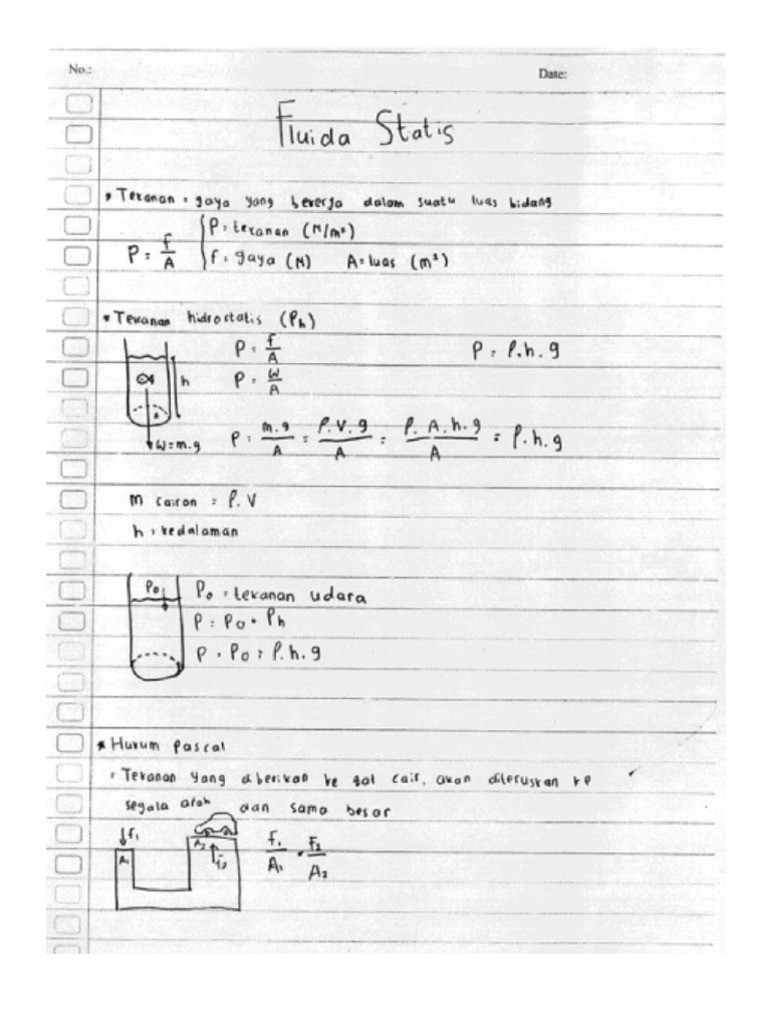 No.:
Date:
Fluida Statis
* Tekanan = gaya yang bekerja dalam suatu luas bidang
P = f/A
P = tekanan (N/m²)
f = gaya (N) A = luas (m²)
* Tekanan hidrostatis (Ph)
P = f/A
P = ρ.h.g
P = w/A
h
A
w = m.g
P = m.g/A = ρ.V.g/A = ρ.A.h.g/A = ρ.h.g
m cairan = ρ.V
h = kedalaman
Po
Po = tekanan udara
P = Po + Ph
P = Po = ρ.h.g
* Hukum Pascal
= Tekanan yang diberikan ke zat cair, akan diteruskan ke
segala arah dan sama besar
f₁
A₁
A₂
F₂
f₁/A₁ = F₂/A₂